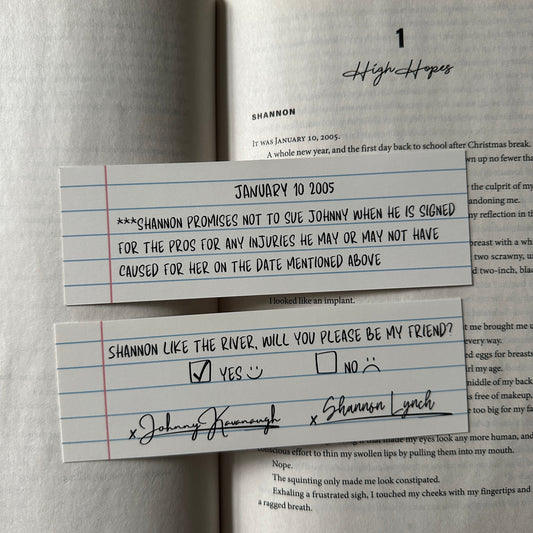 1
High Hopes
SHANNON
IT WAS JANUARY 10, 2005.
A whole new year, and the first day back to school after Christmas break.
wn up no fewer tha
the culprit of my
andoning me.
my reflection in th
JANUARY 10 2005
***SHANNON PROMISES NOT TO SUE JOHNNY WHEN HE IS SIGNED
FOR THE PROS FOR ANY INJURIES HE MAY OR MAY NOT HAVE
CAUSED FOR HER ON THE DATE MENTIONED ABOVE
breast with a wh
two scrawny, u
d two-inch, blac
I looked like an implant.
SHANNON LIKE THE RIVER, WILL YOU PLEASE BE MY FRIEND?
YES NO
x Johnny Kavanaugh x Shannon Lynch
t me brought me u
every way.
ed eggs for breasts
irl my age.
middle of my back
s free of makeup,
e too big for my fa
made my eyes look any more human, and
conscious effort to thin my swollen lips by pulling them into my mouth.
Nope.
The squinting only made me look constipated.
Exhaling a frustrated sigh, I touched my cheeks with my fingertips and
a ragged breath.